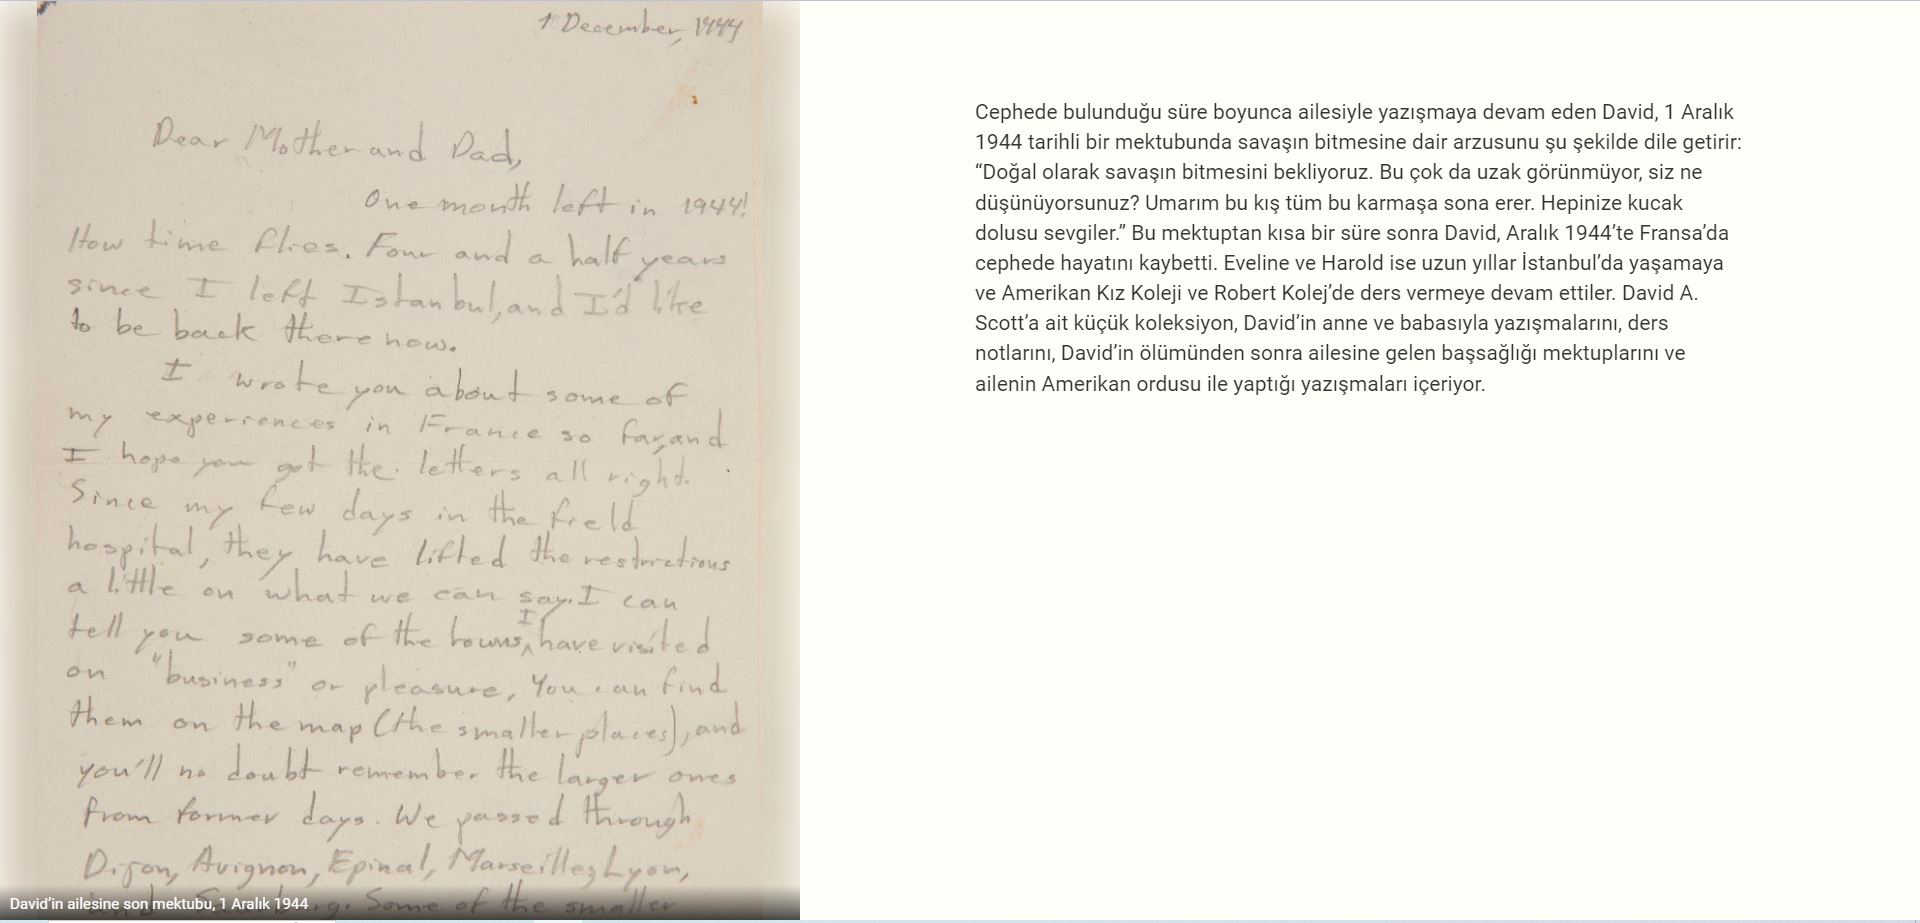 1 December, 1944
Dear Mother and Dad,
One month left in 1944!
How time flies. Four and a half years
since I left Istanbul, and I'd like
to be back there now.
I wrote you about some of
my experiences in France so far, and
I hope you got the letters all right.
Since my few days in the field
hospital, they have lifted the restrictions
a little on what we can say. I can
tell you some of the towns I have visited
on "business" or pleasure. You can find
them on the map (the smaller places), and
you'll no doubt remember the larger ones
from former days. We passed through
Dijon, Avignon, Epinal, Marseilles, Lyon,
and Some of the smaller
David’in ailesine son mektubu, 1 Aralık 1944
Cephede bulunduğu süre boyunca ailesiyle yazışmaya devam eden David, 1 Aralık
1944 tarihli bir mektubunda savaşın bitmesine dair arzusunu şu şekilde dile getirir:
“Doğal olarak savaşın bitmesini bekliyoruz. Bu çok da uzak görünmüyor, siz ne
düşünüyorsunuz? Umarım bu kış tüm bu karmaşa sona erer. Hepinize kucak
dolusu sevgiler.” Bu mektuptan kısa bir süre sonra David, Aralık 1944’te Fransa’da
cephede hayatını kaybetti. Eveline ve Harold ise uzun yıllar İstanbul’da yaşamaya
ve Amerikan Kız Koleji ve Robert Kolej’de ders vermeye devam ettiler. David A.
Scott’a ait küçük koleksiyon, David’in anne ve babasıyla yazışmalarını, ders
notlarını, David’in ölümünden sonra ailesine gelen başsağlığı mektuplarını ve
ailenin Amerikan ordusu ile yaptığı yazışmaları içeriyor.